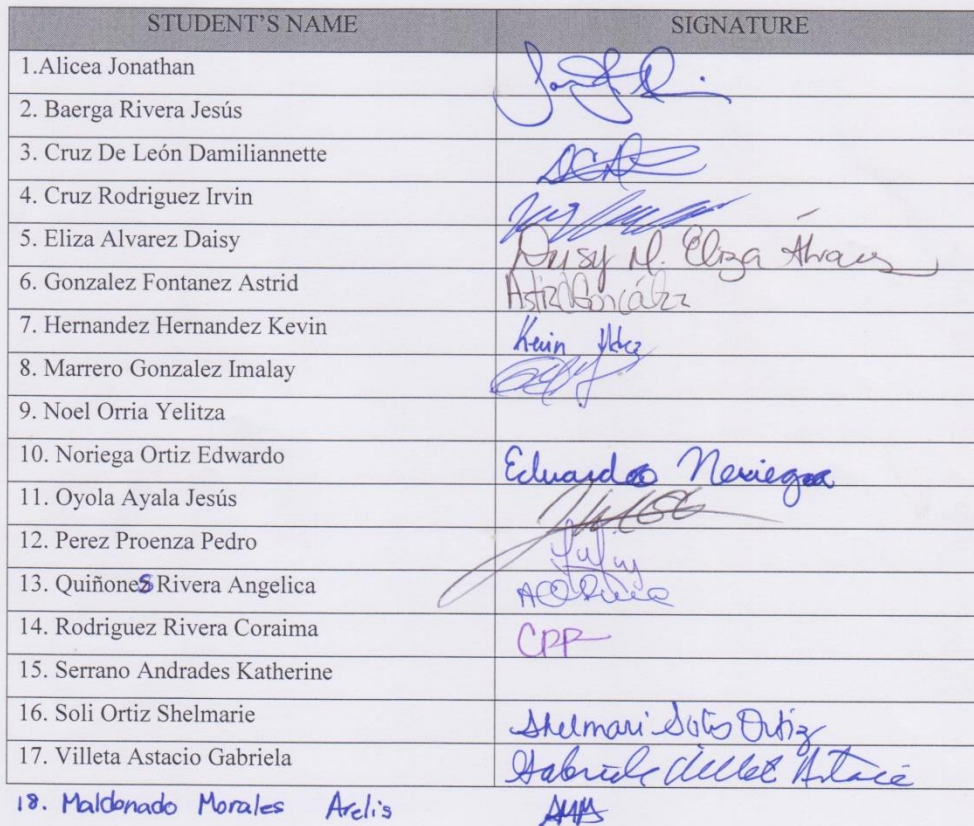 STUDENT'S NAME SIGNATURE
1.Alicea Jonathan
2. Baerga Rivera Jesús
3. Cruz De León Damiliannette
4. Cruz Rodriguez Irvin
5. Eliza Alvarez Daisy Daisy M. Eliza Álvarez
6. Gonzalez Fontanez Astrid Astrid González
7. Hernandez Hernandez Kevin Kevin Hdez
8. Marrero Gonzalez Imalay
9. Noel Orria Yelitza
10. Noriega Ortiz Edwardo Eduardo Noriega
11. Oyola Ayala Jesús
12. Perez Proenza Pedro
13. Quiñones Rivera Angelica
14. Rodriguez Rivera Coraima CPP
15. Serrano Andrades Katherine
16. Soli Ortiz Shelmarie Shelmari Solis Ortiz
17. Villeta Astacio Gabriela
18. Maldonado Morales Arelis AMM